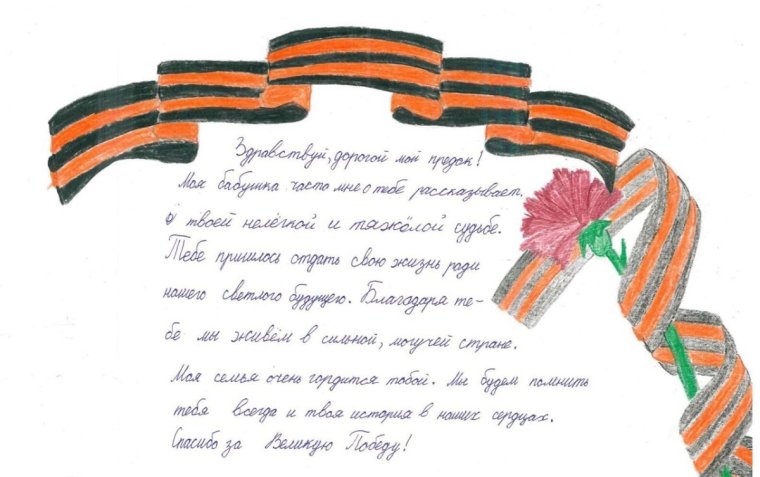 Здравствуй, дорогой мой предок!
Моя бабушка часто мне о тебе рассказывает.
О твоей нелёгкой и тяжёлой судьбе.
Тебе пришлось отдать свою жизнь ради
нашего светлого будущего. Благодаря те-
бе мы живём в сильной, могучей стране.
Моя семья очень гордится тобой. Мы будем помнить
тебя всегда и твоя история в наших сердцах.
Спасибо за Великую Победу!